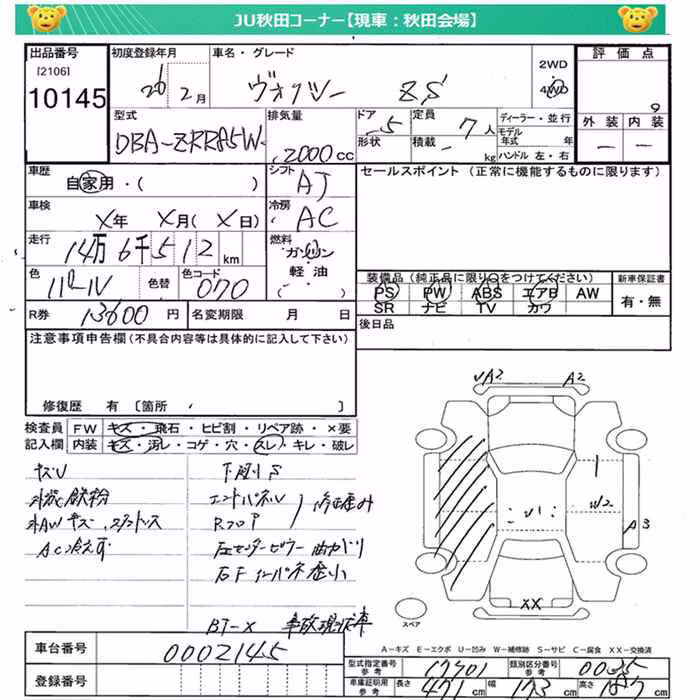 JU秋田コーナー【現車：秋田会場】
出品番号 初度登録年月 車名・グレード 2WD 評価点
[2106] 26年 2月 ヴォクシー ZS 4WD 9
10145
型式 排気量 ドア 5 定員 7人 ディーラー・並行 外装 内装
DBA-ZRR85W 2000cc 形状 積載 - kg モデル年式 年 ー ー
ハンドル 左・右
車歴 自家用・( ) シフト AT セールスポイント (正常に機能するものに限ります)
車検 X年 X月( X日) 冷房 AC
走行 14万6千512km 燃料 ガソリン
軽油
( )
色 パール 色替 色コード 070 装備品(純正品に限り○をつけてください) 新車保証書
PS PW ABS エアB AW 有・無
SR ナビ TV カワ
R券 13600円 名変期限 月 日 後日品
注意事項申告欄(不具合内容等は具体的に記入して下さい)
修復歴 有 [箇所 ]
検査員 FW キズ・飛石・ヒビ割・リペア跡・×要
記入欄 内装 キズ・汚レ・コゲ・穴・スレ・キレ・破レ
キズU 下廻りS
外装鉄粉 エンドパネル
外AWキズ Rフロア
AC冷えず 左センターピラー曲がり
右Fインパネ歪小
修正歪み
BT-X 事故現状車
车台番号 0002145
登録番号
UA2 A2
U1 W2 A3
XX
スペア
A-キズ E-エクボ U-凹み W-補修跡 S-サビ C-腐食 XX-交換済
型式指定番号 参考 17401 類別区分番号 参考 0035
車庫証明用 参考 長さ 471cm 幅 173cm 高さ 187cm